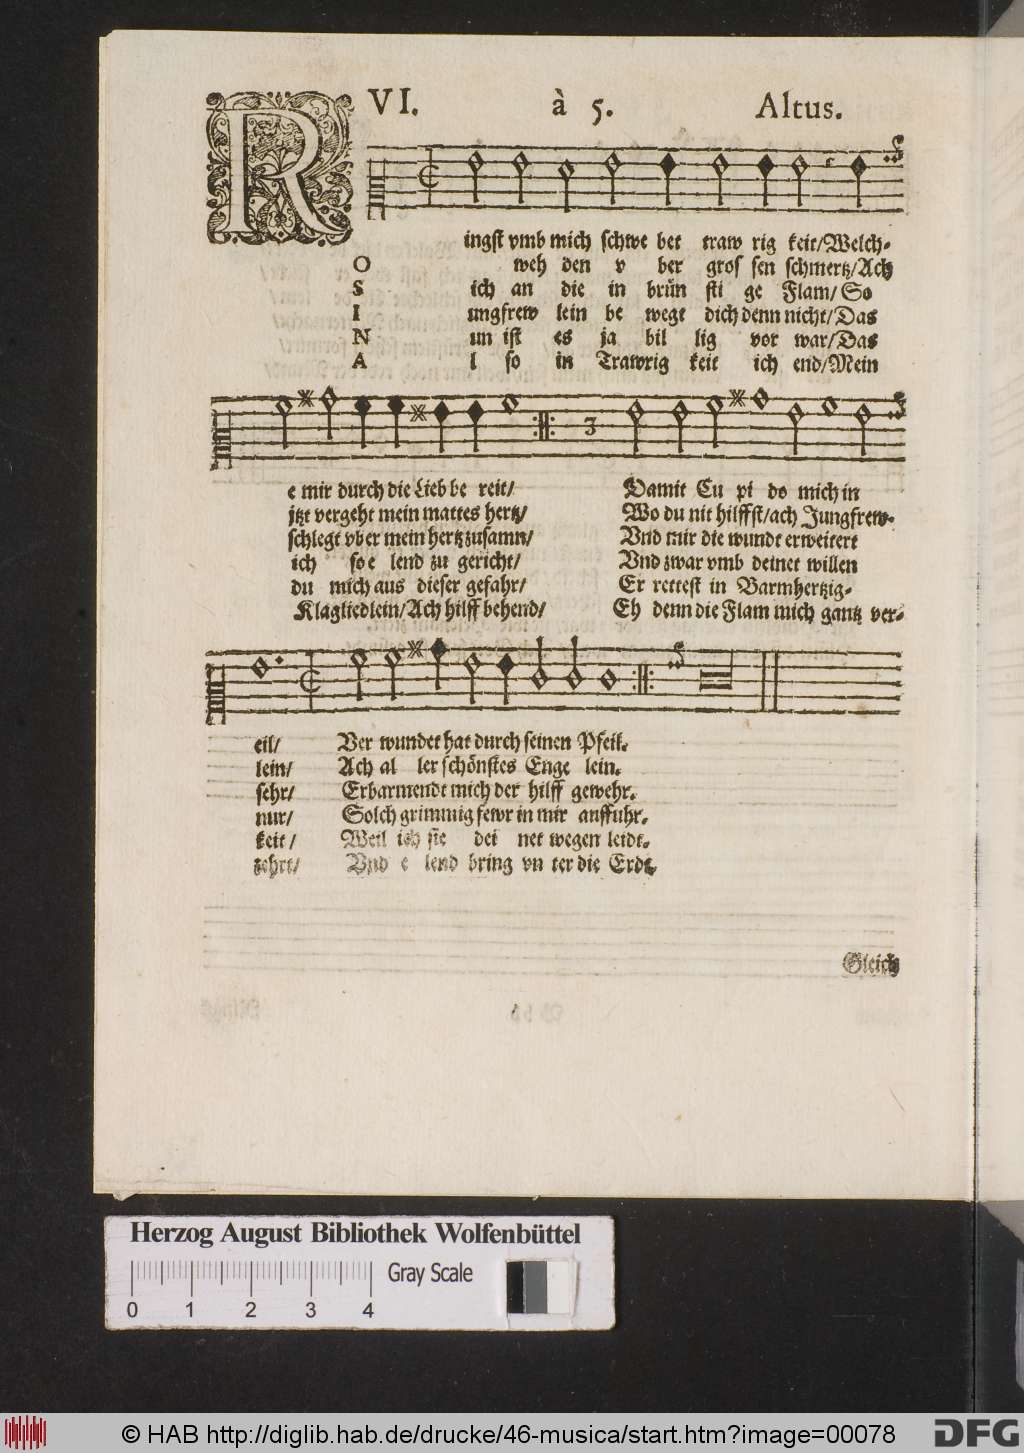 VI. à 5. Altus.
R
ingst vmb mich schwe bet traw rig keit/Welch-
O weh den v ber gros sen schmertz/Ach
S ich an die in brün sti ge Flam/So
I ungfrew lein be wegt dich denn nicht/Das
N un ist es ja bil lig vor war/Das
A l so in Trawrig keit ich end/Mein
3
e mir durch die Lieb be reit/ Damit Cu pi do mich in
jtzt vergeht mein mattes hertz/ Wo du nit hilffst/ach Jungfrew-
schlegt vber mein hertz zusamn/ Vnd mir die wundt erweitert
ich so e lend zu gericht/ Vnd zwar vmb deinet willen
du mich aus dieser gefahr/ Er rettest in Barmhertzig-
Klagliedlein/Ach hilff behend/ Eh denn die Flam mich gantz ver-
eil/ Ver wundet hat durch seinen Pfeil.
lein/ Ach al ler schönstes Enge lein.
sehr/ Erbarmendt mich der hilff gewehr.
nur/ Solch grimmig fewr in mir anffuhr.
keit/ Weil ich sie dei net wegen leidt.
zehrt/ Vnd e lend bring vn ter die Erdt.
Gleich
Herzog August Bibliothek Wolfenbüttel
Gray Scale
0 1 2 3 4
© HAB http://diglib.hab.de/drucke/46-musica/start.htm?image=00078
DFG